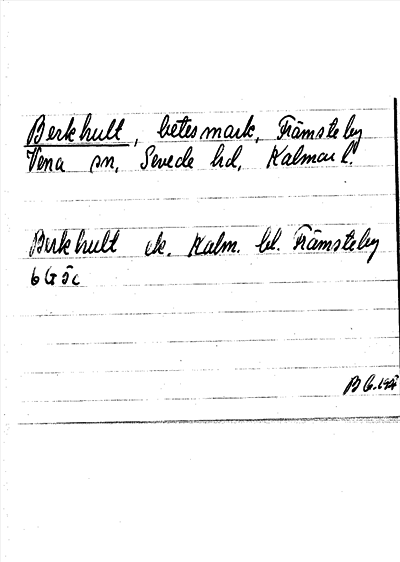 Berkhult, betesmark, Främsteby
Vena sn, Sevede hd, Kalmar l.
Berkhult ek. Kalm. bl. Främsteby
6 G 5c
B G.